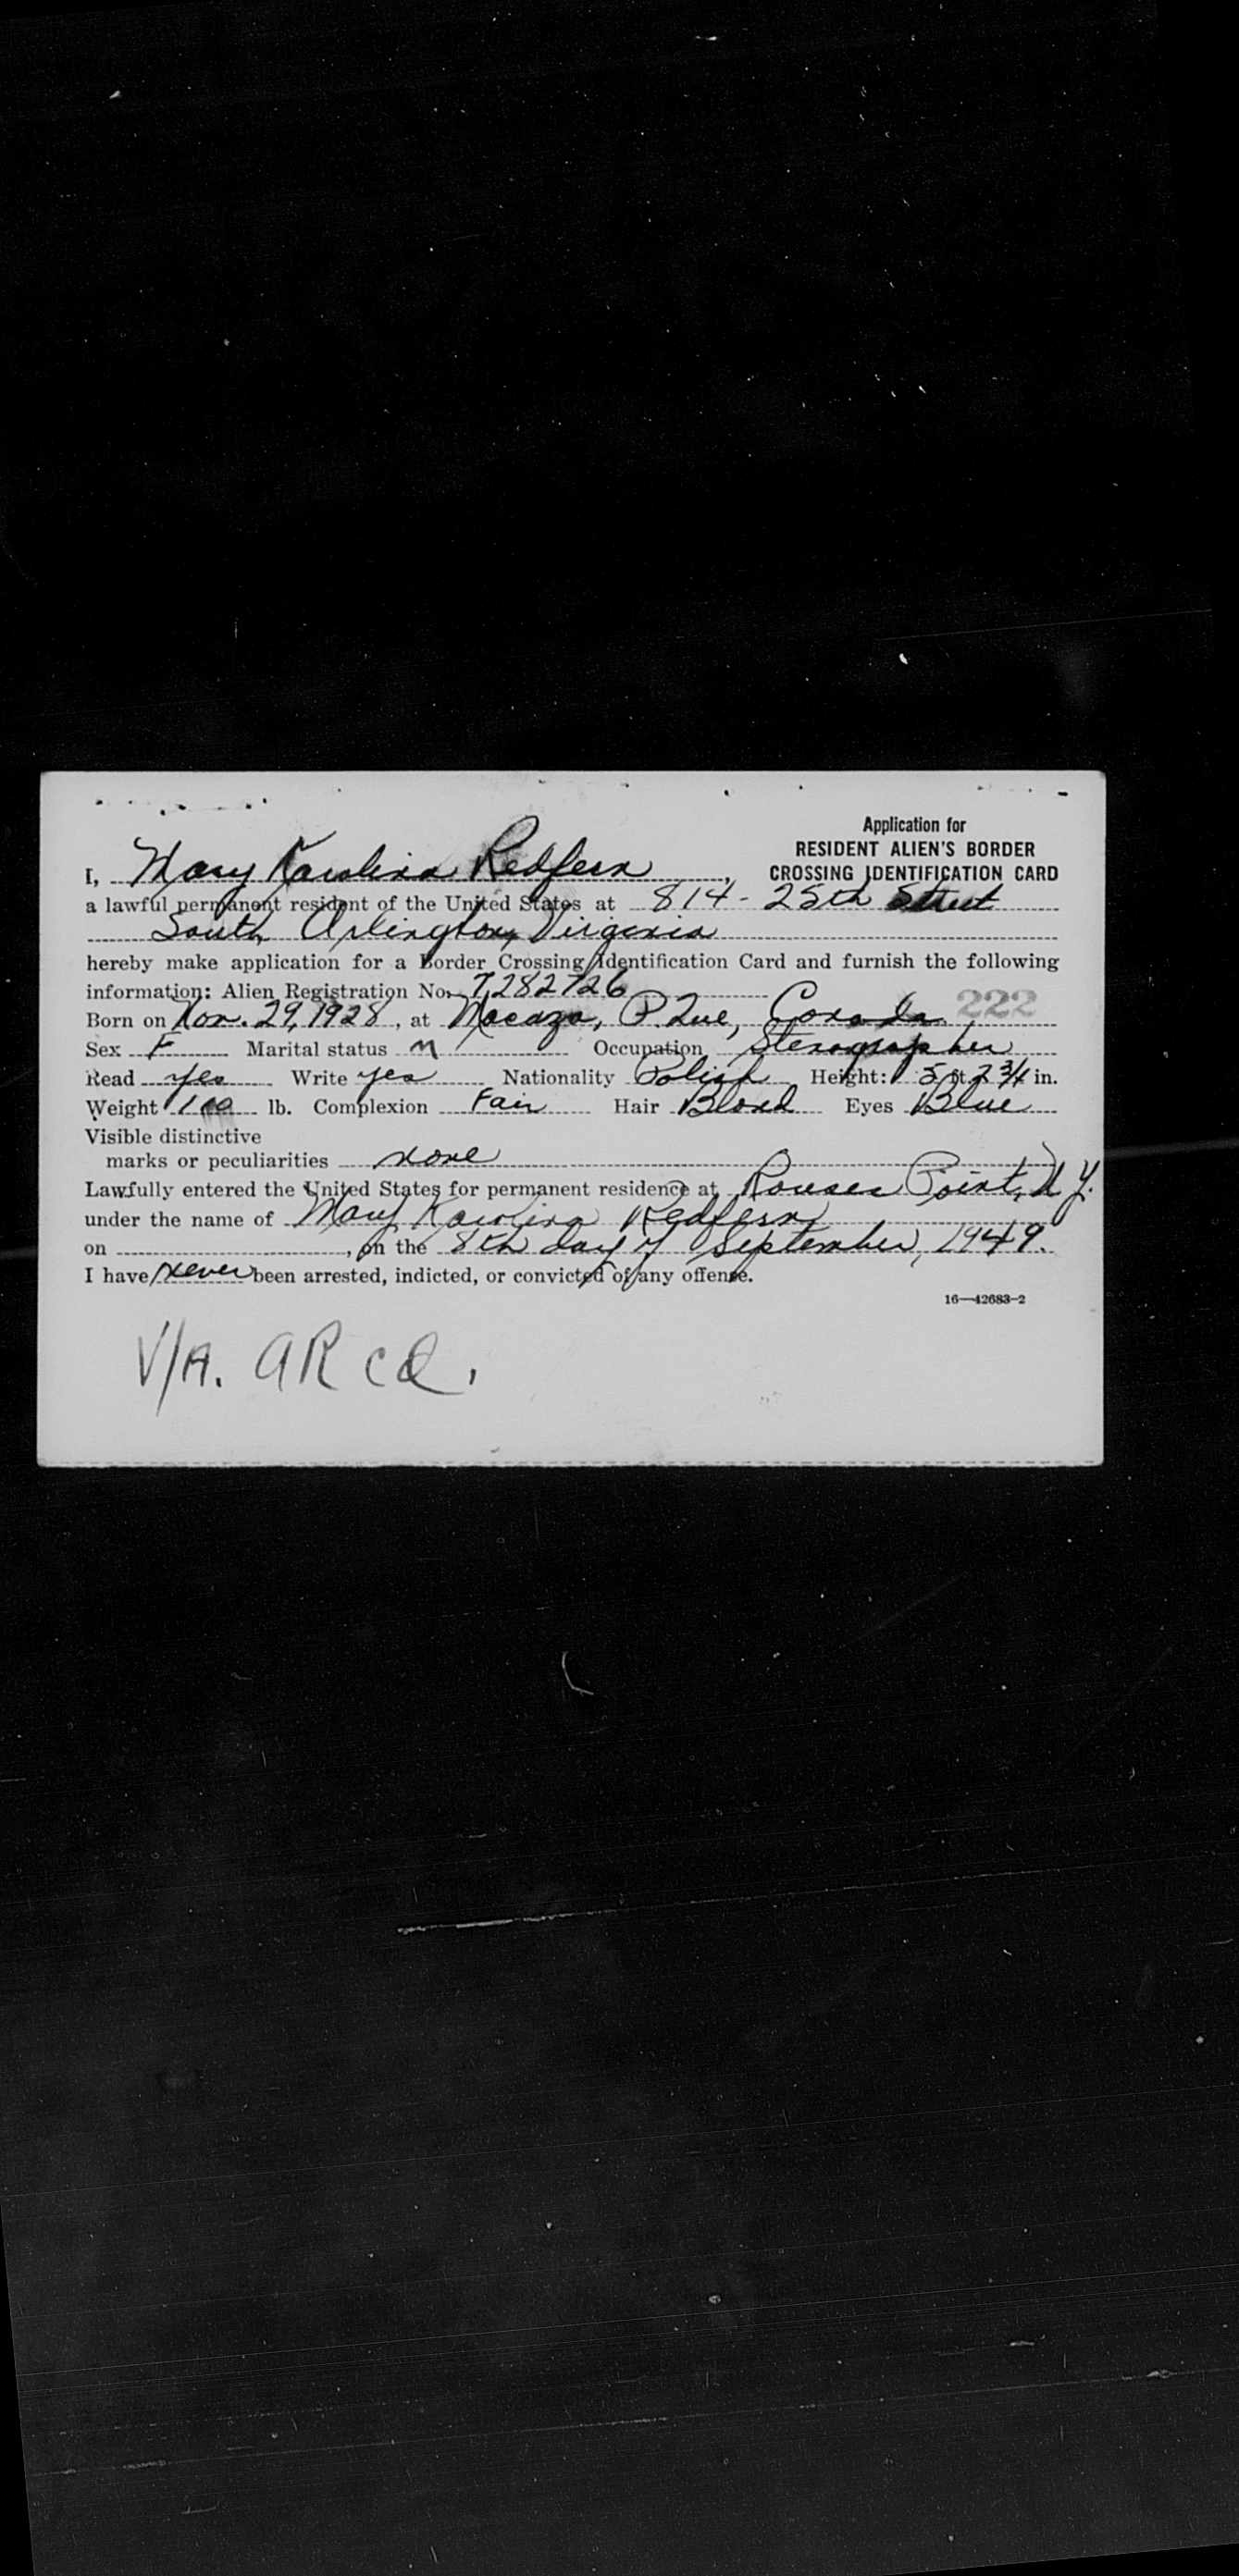 Application for
RESIDENT ALIEN'S BORDER
CROSSING IDENTIFICATION CARD
I, Mary Karolina Redfern,
a lawful permanent resident of the United States at 814 - 25th Street
South, Arlington, Virginia
hereby make application for a Border Crossing Identification Card and furnish the following
information: Alien Registration No. 7282726
Born on Nov. 29, 1928, at Macaza, P. Que, Canada 222
Sex F Marital status M Occupation Stenographer
Read yes Write yes Nationality Polish Height: 5 ft. 2 3/4 in.
Weight lb. Complexion Fair Hair Blond Eyes Blue
Visible distinctive
marks or peculiarities none
Lawfully entered the United States for permanent residence at Rouses Point, N.Y.
under the name of Mary Karolina Redfern
on , on the 8th day of September, 1949.
I have never been arrested, indicted, or convicted of any offense.
16—42683-2
V/A. AR